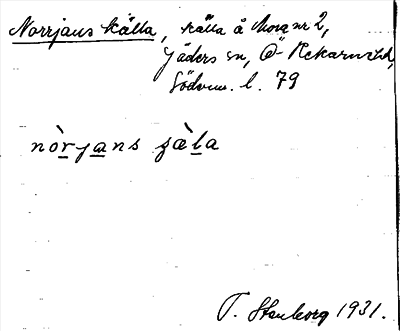 Norrjans källa, källa å Mora nr 2,
Jäders sn, Ö Rekarne hd,
Södm. l. 79
nòrjans ʂàla
T. Stenborg 1931.